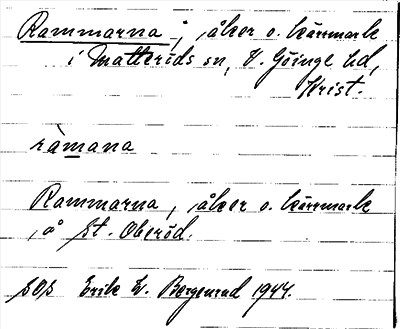 Rammarna, åker o. kärrmark
i Matteröds sn, V. Göinge hd,
Krist.
ràmana
Rammarna, åker o. kärrmark
å St. Oberöd.
SOS Erik E. Bergenrud 1944.